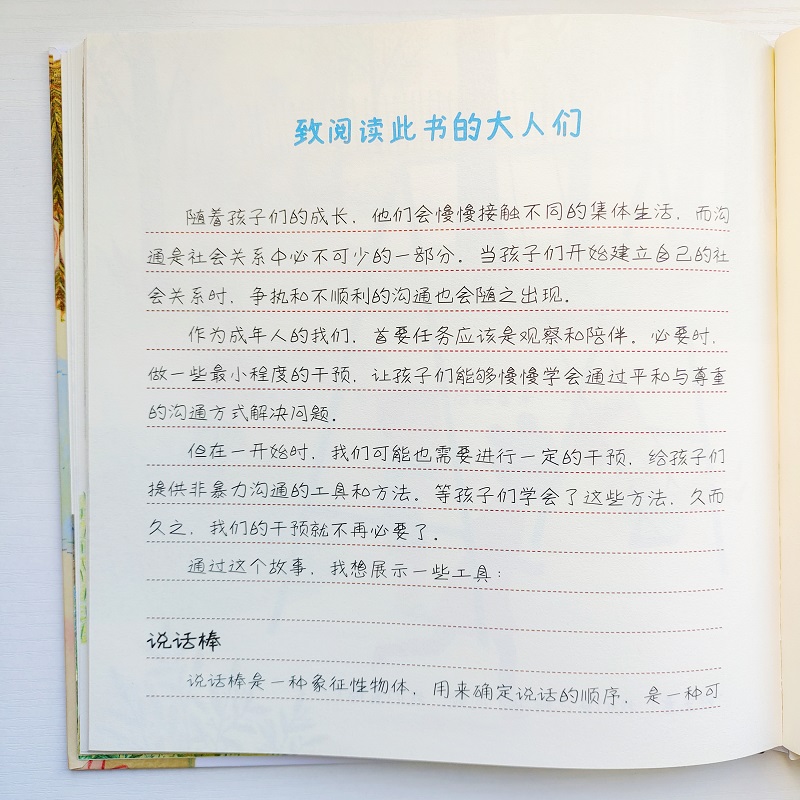 致阅读此书的大人们
随着孩子们的成长，他们会慢慢接触不同的集体生活，而沟
通是社会关系中必不可少的一部分。当孩子们开始建立自己的社
会关系时，争执和不顺利的沟通也会随之出现。
作为成年人的我们，首要任务应该是观察和陪伴。必要时，
做一些最小程度的干预，让孩子们能够慢慢学会通过平和与尊重
的沟通方式解决问题。
但在一开始时，我们可能也需要进行一定的干预，给孩子们
提供非暴力沟通的工具和方法。等孩子们学会了这些方法，久而
久之，我们的干预就不再必要了。
通过这个故事，我想展示一些工具：
说话棒
说话棒是一种象征性物体，用来确定说话的顺序，是一种可